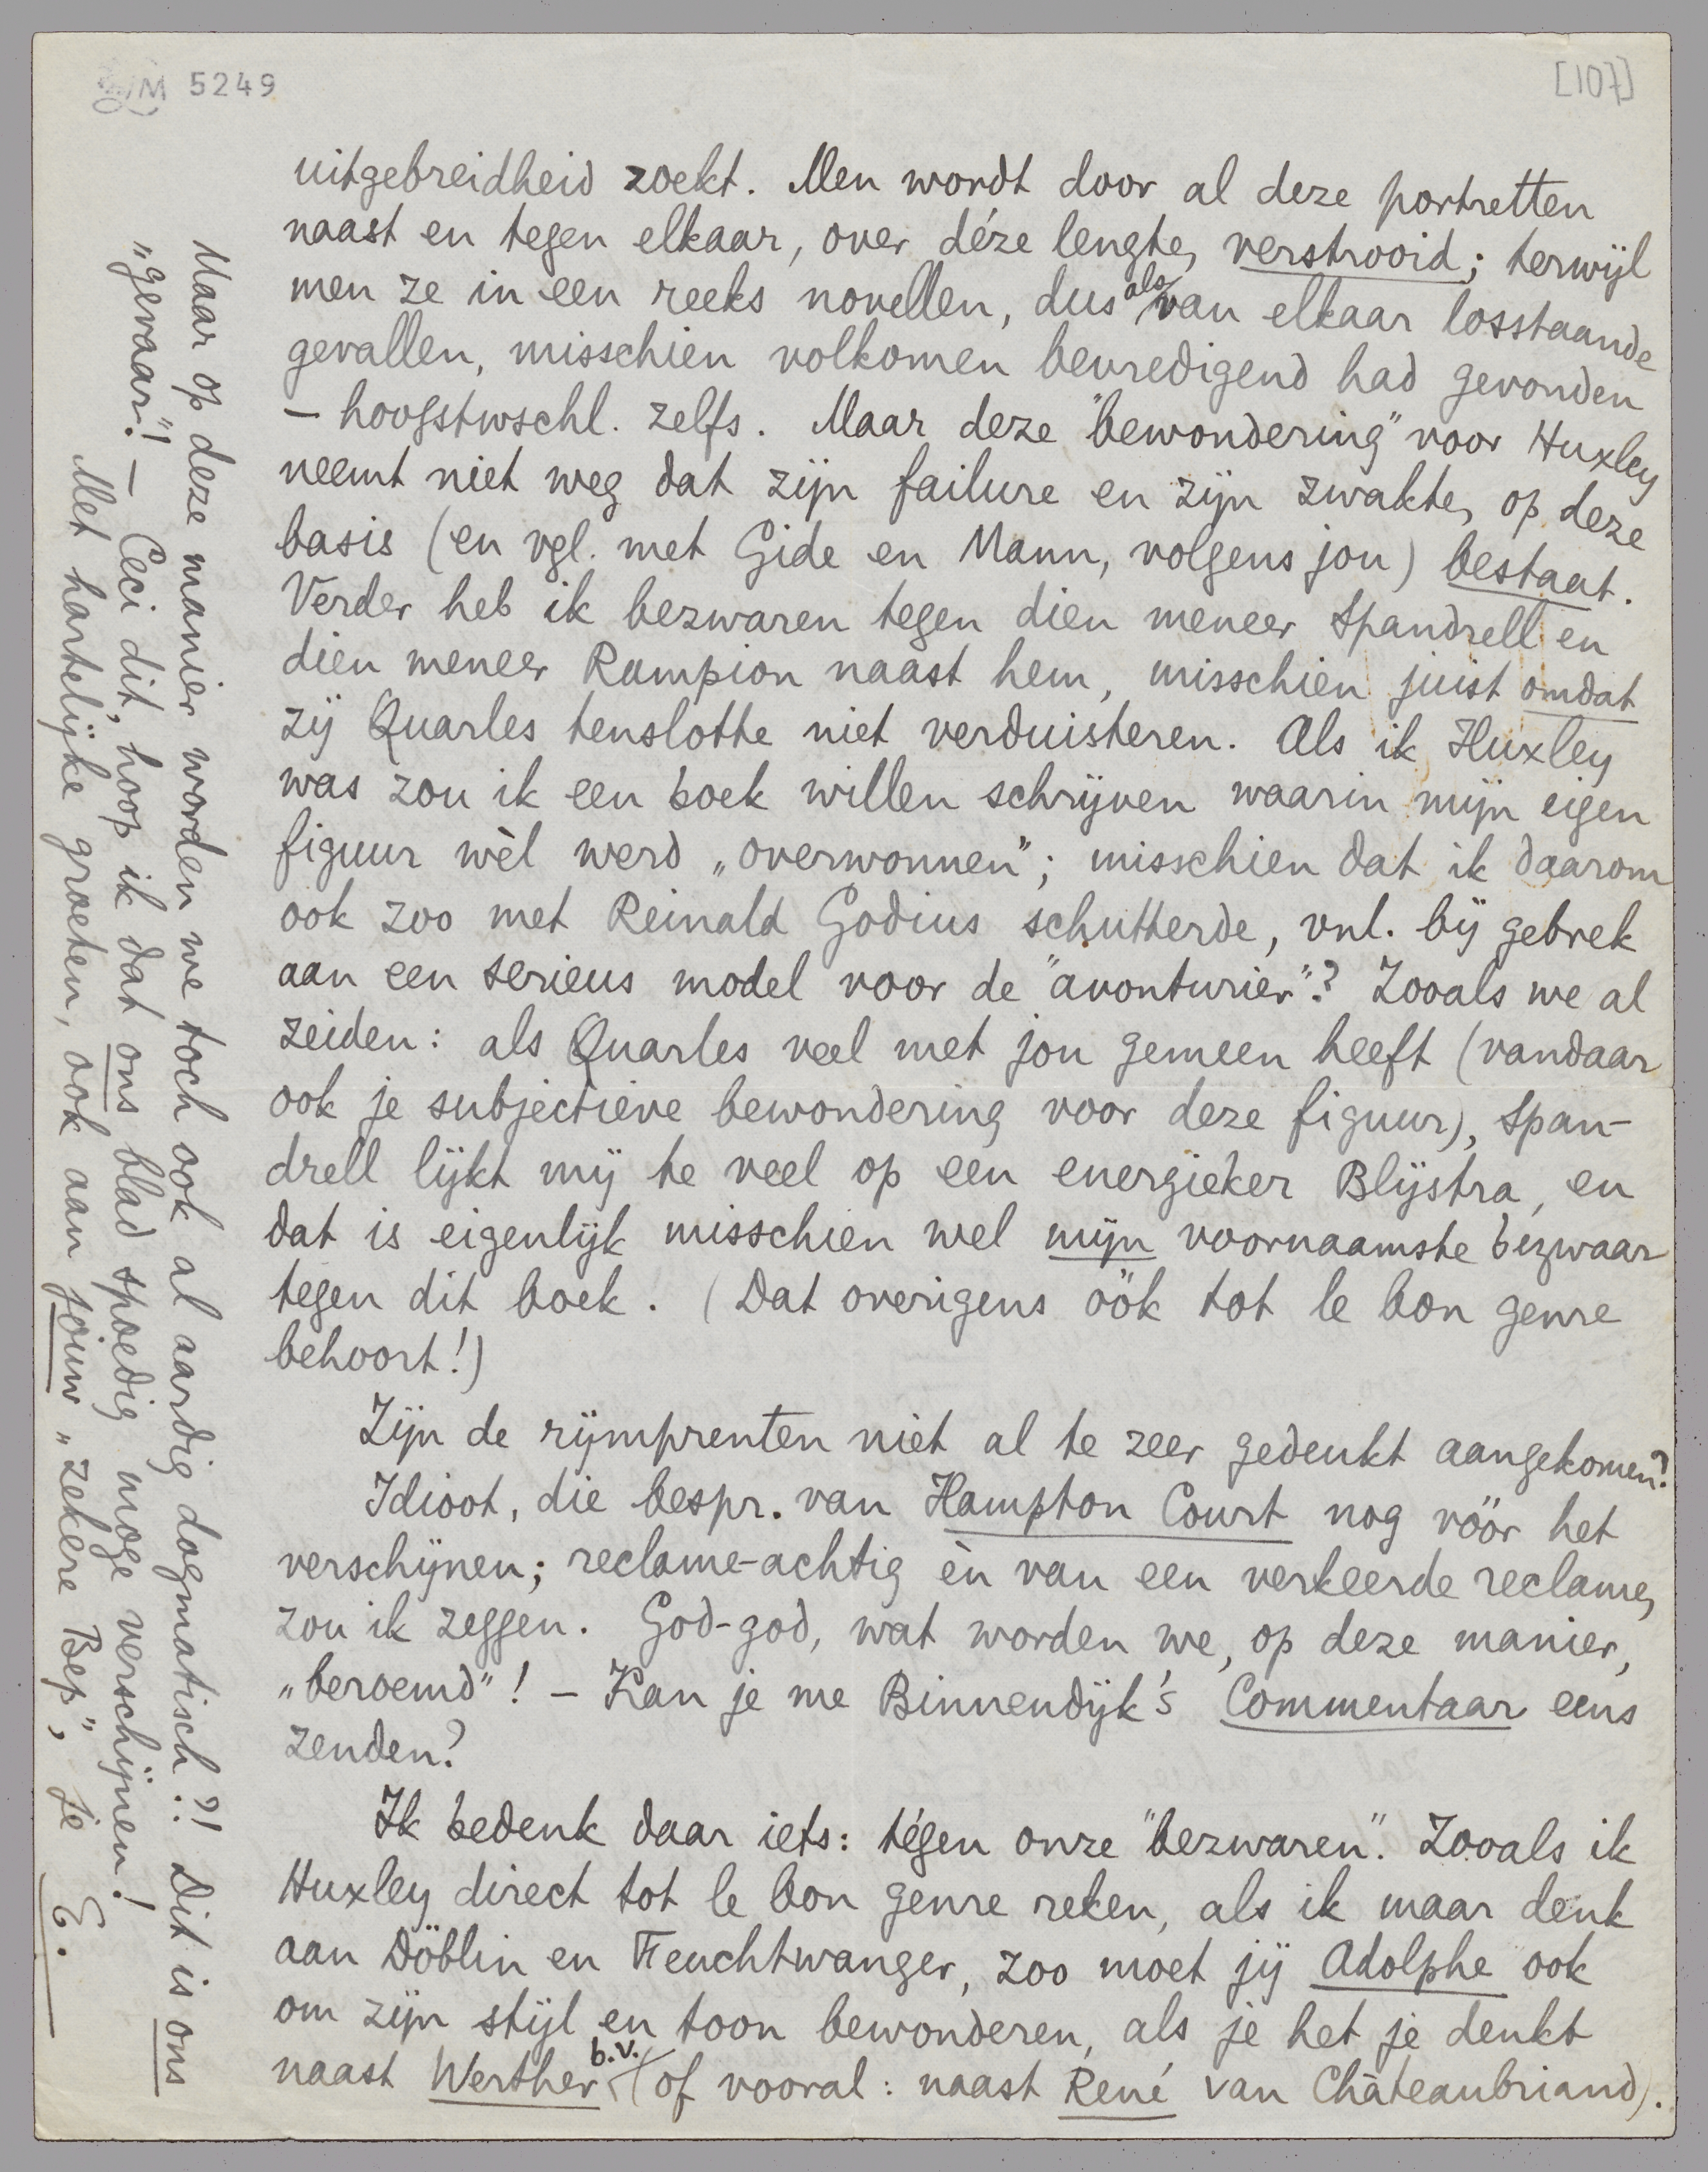 M 5249
[107]
uitgebreidheid zoekt. Men wordt door al deze portretten
naast en tegen elkaar, over déze lengte, verstrooid; terwijl
men ze in een reeks novellen, dus als van elkaar losstaande
gevallen, misschien volkomen bevredigend had gevonden
– hoogstwschl. zelfs. Maar deze "bewondering" voor Huxley
neemt niet weg dat zijn failure en zijn zwakte, op deze
basis (en vgl. met Gide en Mann, volgens jou) bestaat.
Verder heb ik bezwaren tegen dien meneer Spandrell en
dien meneer Rampion naast hem, misschien juist omdat
zij Quarles tenslotte niet verduisteren. Als ik Huxley
was zou ik een boek willen schrijven waarin mijn eigen
figuur wèl werd „overwonnen"; misschien dat ik daarom
ook zoo met Reinald Godius schutterde, vnl. bij gebrek
aan een serieus model voor de "avonturier".? Zooals we al
zeiden: als Quarles veel met jou gemeen heeft (vandaar
ook je subjectieve bewondering voor deze figuur), Span-
drell lijkt mij te veel op een energieker Blijstra, en
dat is eigenlijk misschien wel mijn voornaamste bezwaar
tegen dit boek. (Dat overigens óók tot le bon genre
behoort!)
Zijn de rijmprenten niet al te zeer gedeukt aangekomen?
Idioot, die bespr. van Hampton Court nog vóór het
verschijnen; reclame-achtig èn van een verkeerde reclame,
zou ik zeggen. God-god, wat worden we, op deze manier,
„beroemd"! – Kan je me Binnendijk's Commentaar eens
zenden?
Ik bedenk daar iets: tégen onze "bezwaren". Zooals ik
Huxley direct tot le bon genre reken, als ik maar denk
aan Döblin en Feuchtwanger, zoo moet jij Adolphe ook
om zijn stijl en toon bewonderen, als je het je denkt
naast Werther b.v. (of vooral: naast René van Châteaubriand).
Maar op deze manier worden we toch ook al aardig dogmatisch?! Dit is ons
„gevaar"! – Ceci dit, hoop ik dat ons blad spoedig moge verschijnen!
Met hartelijke groeten, ook aan jouw „zekere Bep", je E.